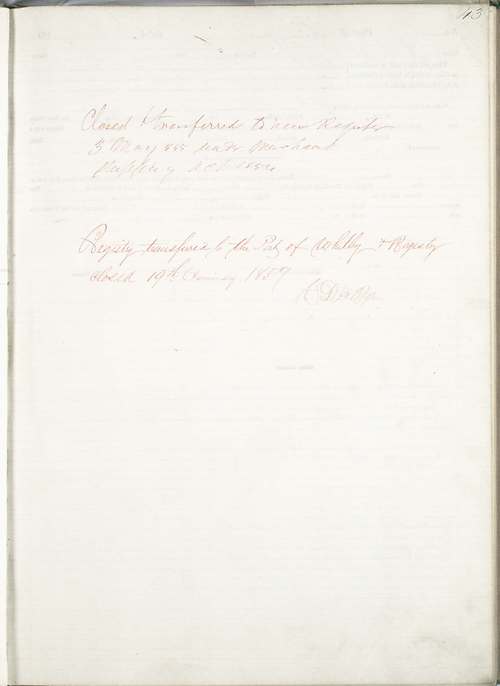 43
Closed & transferred to new Register
3 May 1855 under Merchant
Shipping Act 1854
Registry transferred to the Port of Whitby & Registry
closed 19th 1857